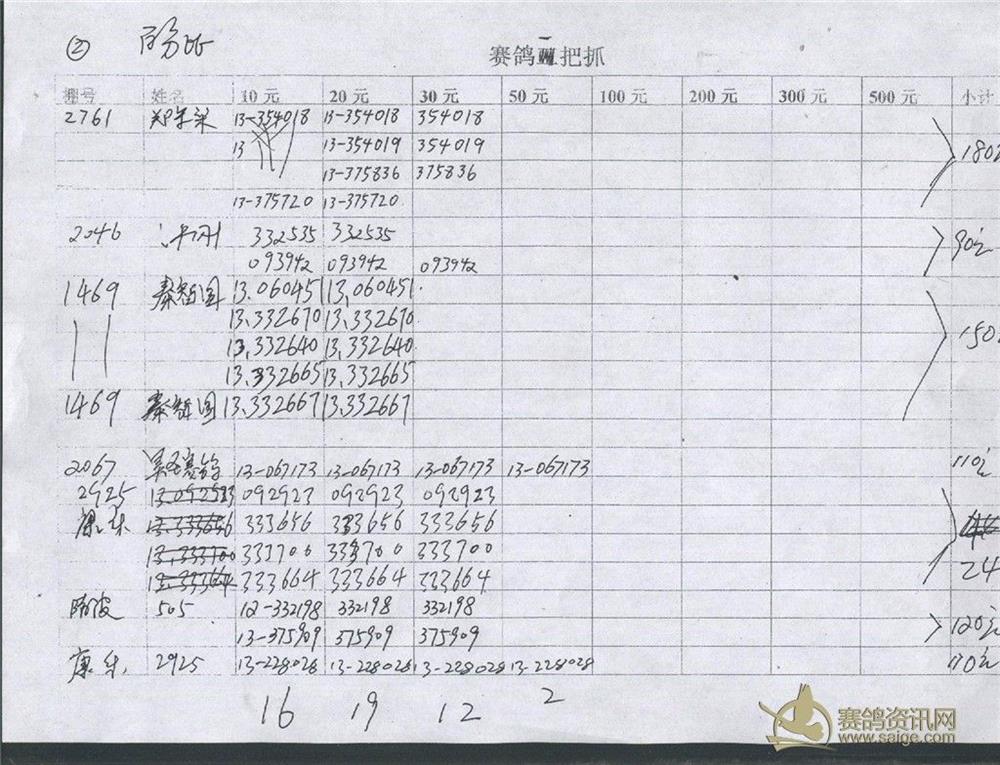 ② 百分比
赛鸽 把抓
棚号 姓名 10元 20元 30元 50元 100元 200元 300元 500元 小计
2761 13-354018 13-354018 354018
13 13-354019 354019 180
13-375836 375836
13-375720 13-375720
2046 332535 332535 90元
093942 093942 093942
1469 秦智国 13.060451 13,060451.
13.332670 13.332670
13,332640 13,332640 150
13.332665 13.332665
1469 秦智国 13.332667 13.332667
2067 13-067173 13-067173 13-067173 13-067173 110元
2925 092923 092923 092923
333656 333656 333656
333700 333700 333700 24
333664 333664 333664
505 12-332198 332198 332198 120元
13-375909 375909 375909
康乐 2925 13-228028 13-228028 13-228028 13-228028 110元
16 19 12 2
赛鸽资讯网
www.saige.com